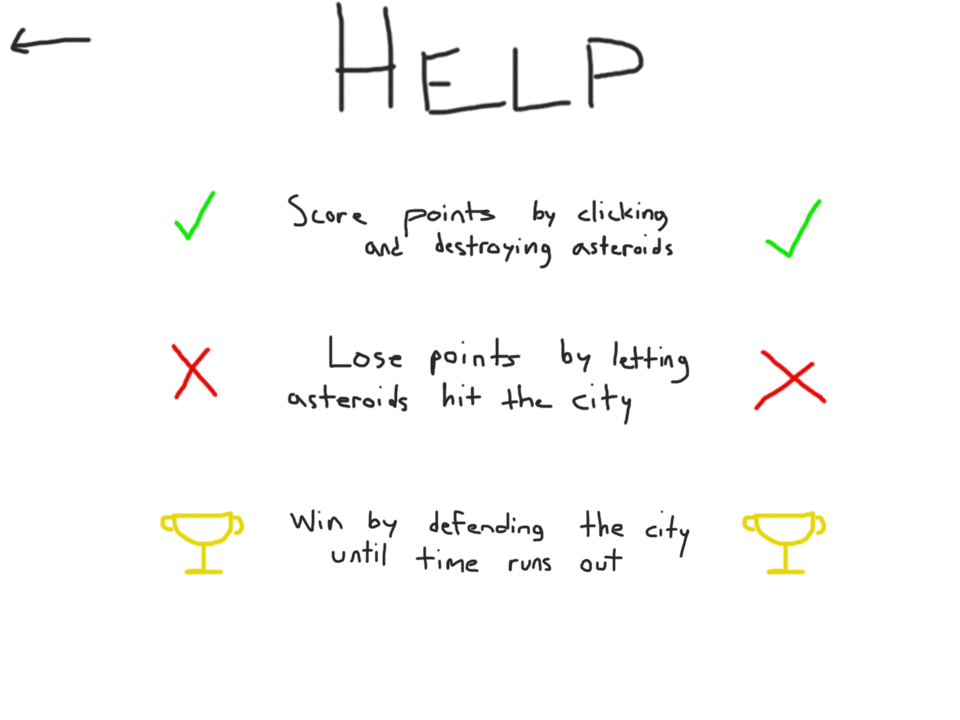 HELP
Score points by clicking
and destroying asteroids
Lose points by letting
asteroids hit the city
Win by defending the city
until time runs out